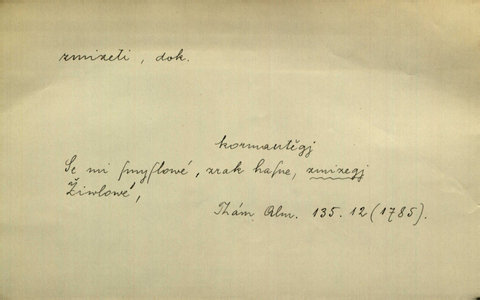 zmizeti, dok.
kormautěgj
Se mi smyslowé, zrak hasne, zmizegj
Žiwlowé,
Thám. Alm. 135. 12 (1785).